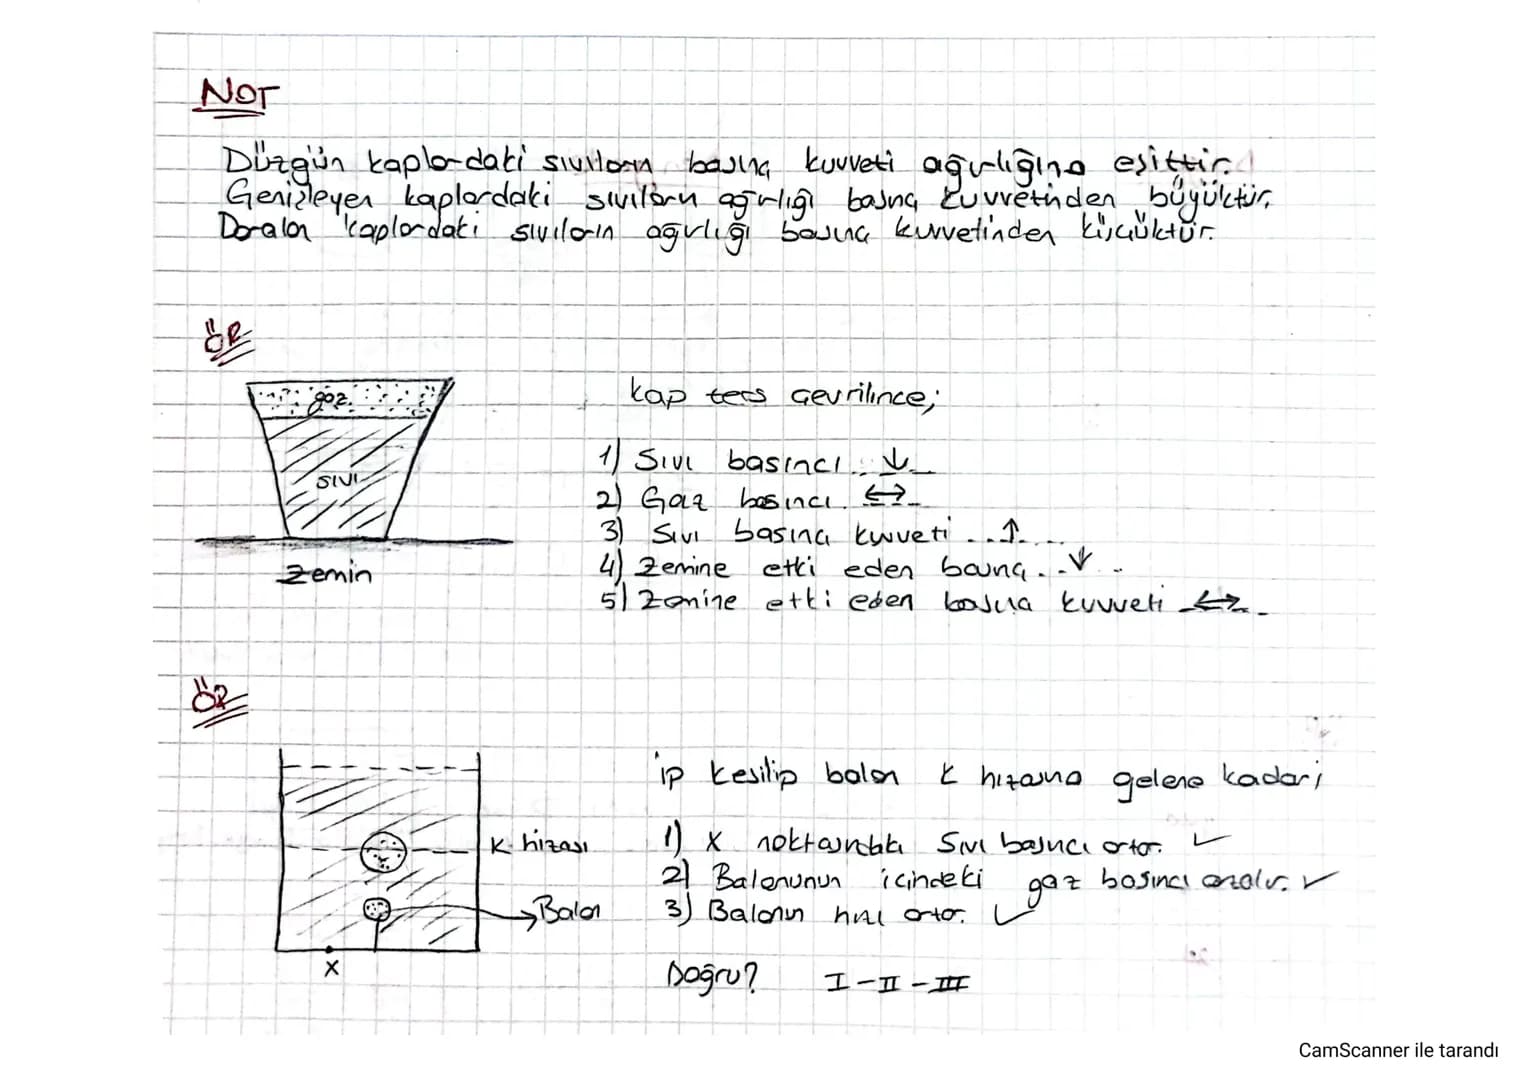 NOT
Düzgün kaplardaki sıvıların basınç kuvveti ağırlığına eşittir.
Genişleyen kaplardaki sıvıların ağırlığı basınç kuvvetinden büyüktür,
Daralan kaplardaki sıvıların ağırlığı basınç kuvvetinden küçüktür.
ÖR
gaz
SIVI
Zemin
kap ters çevrilince;
1) Sıvı basıncı ↓
2) Gaz basıncı ↔
3) Sıvı basınç kuvveti ..↑....
4) Zemine etki eden basınç..↓..
5) Zemine etki eden basınç kuvveti ↔
ÖR
K hizası
Balon
X
ip kesilip balon K hizasına gelene kadar;
1) X noktasındaki Sıvı basıncı artar. ✓
2) Balonunun içindeki gaz basıncı azalır. ✓
3) Balonun hızı artar. ✓
Doğru? I - II - III
CamScanner ile tarandı